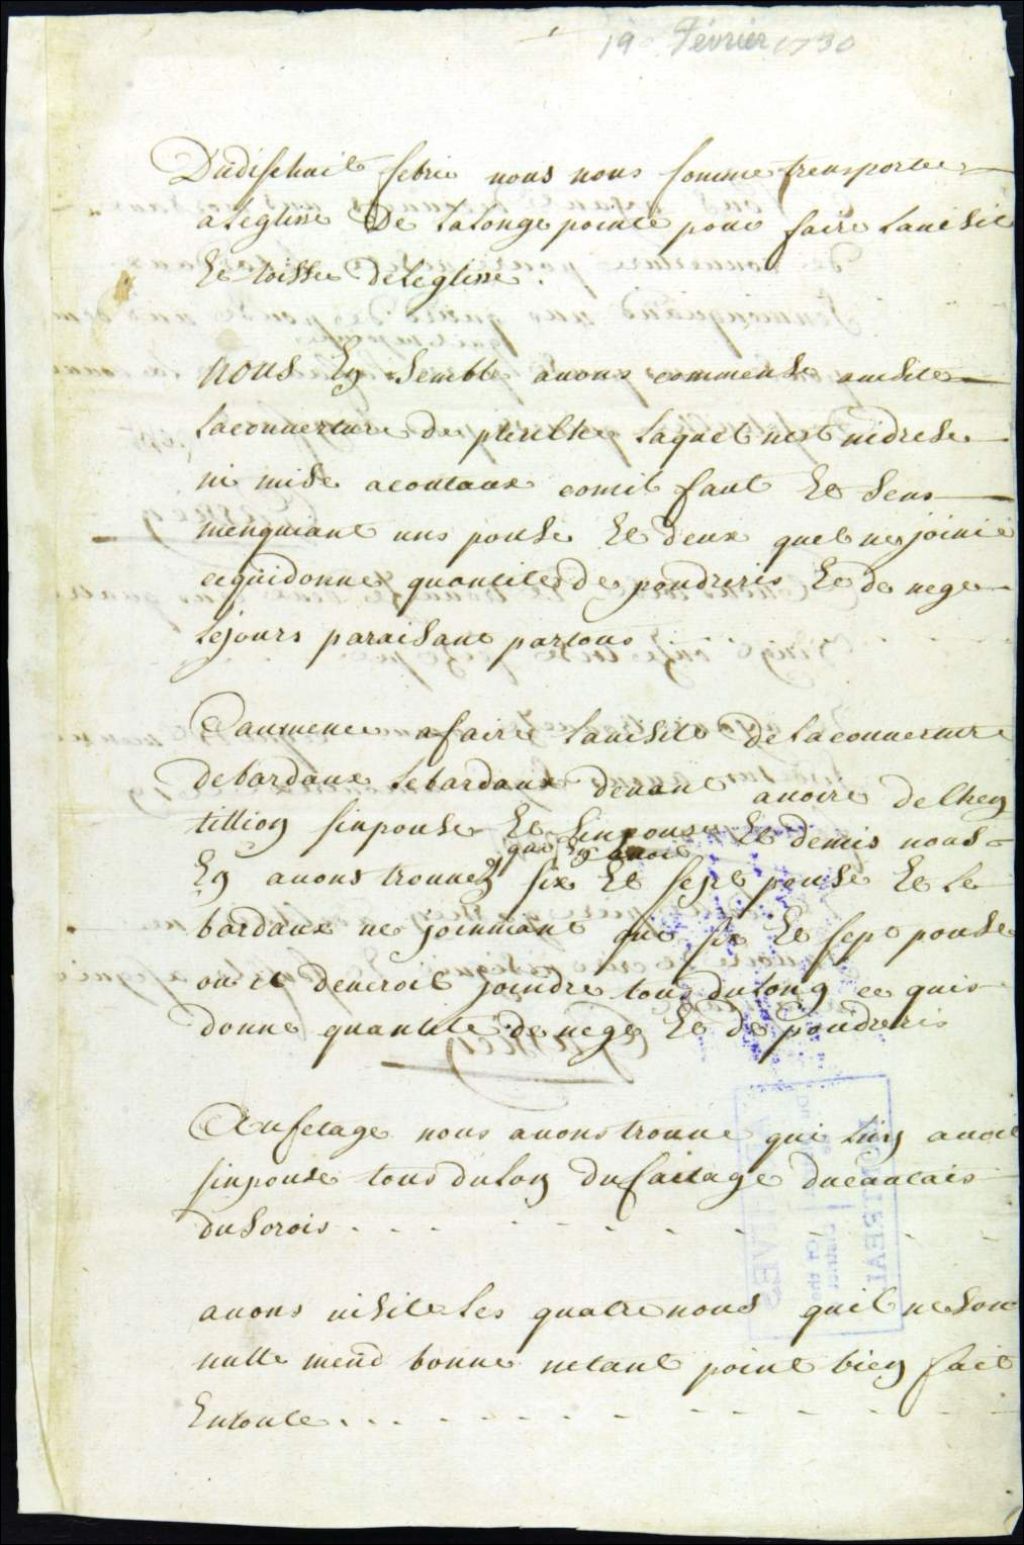 19 Février 1730
Dudishuit febrie nous nous somme transportee
a Leglise De La Longe pointe pour faire La visite
Et toisse De Leglise.
nous En semble avons commense a visite
La couverture de planche Laquel nest ni drese
ni mise a coutaux comil faut Et sens
menquiant uns pouse Et deux quel ne joinie
ce qui donne quantite de poudreris Et de nege
Le jours paraisant partous
Commence a faire La visite De La couverture
de bardaux Le bardaux devant avoire de Chen
tillion sinpouse Et sinpouse Et demis nous
que Ly avoit
En avons trouvez six Et sept pouse Et Le
bardaux ne joinnant que six Et sept pouse
ou il deveroit joindre tous du Long ce qui
donne quantite de nege Et de poudreris
Au fetage nous avons trouve qui Luy avoit
sinpouse tous du Lon du faitage du cautais
du Sorois
avons visite Les quatre nous quil ne son
nulle mend bonne netant point bien fait
En toute
MONTREAL
District